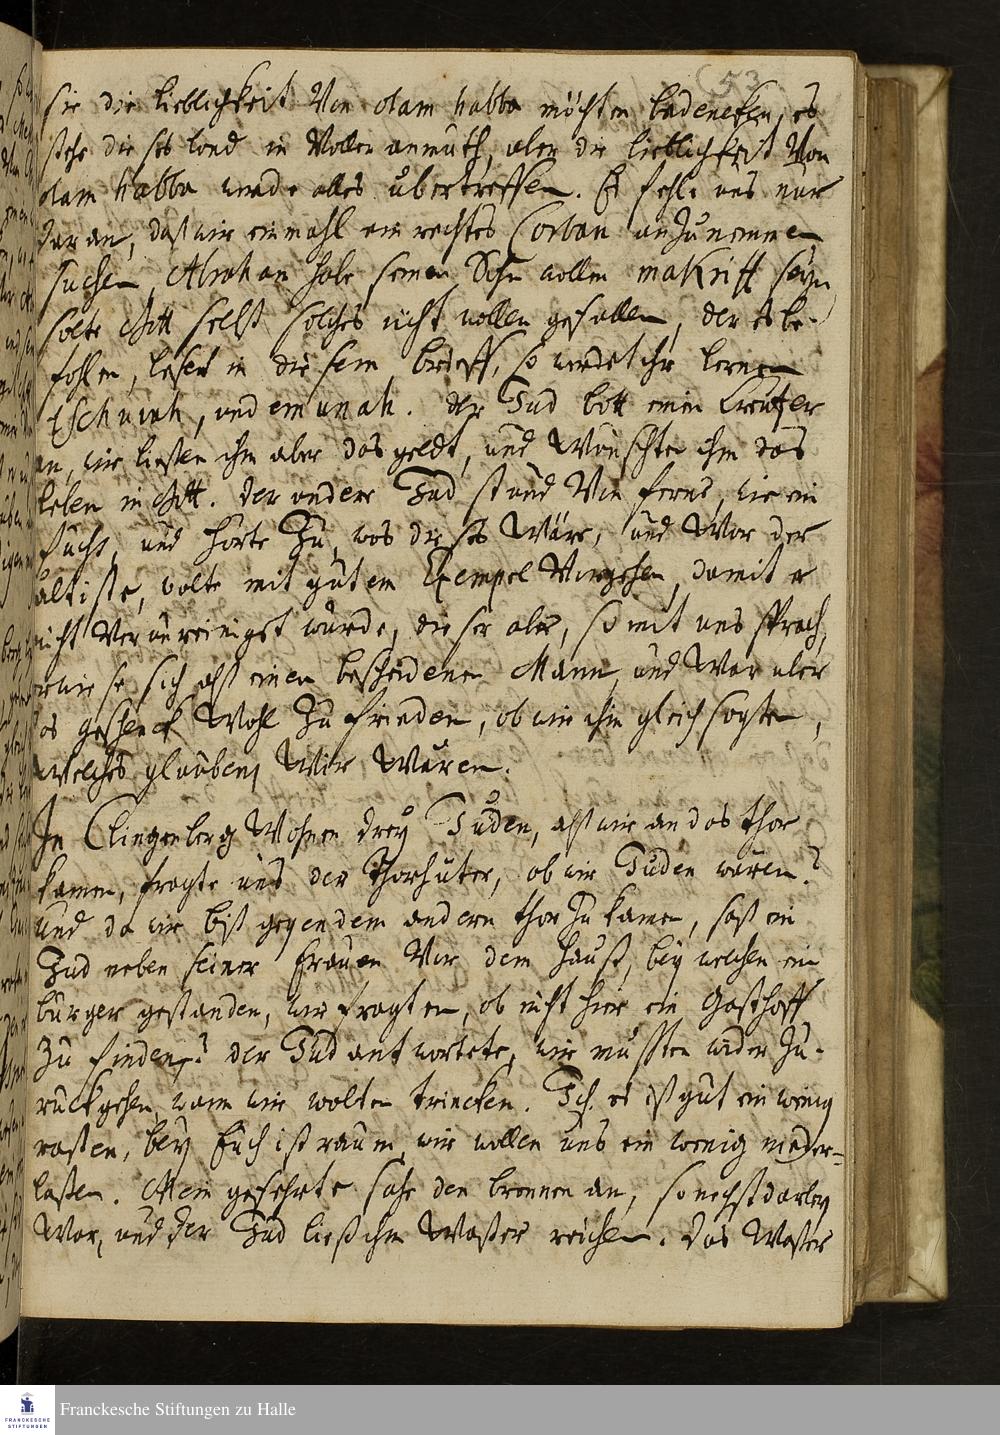 53
sie die lieblichkeit Von olam habba möchten bedencken, es
stehe dieses land in Voller anmuth, aber die lieblichkeit Von
olam habba werde alles übertreffen. Es fehle uns nur
daran, daß wir einmahl ein rechtes Corban anzunemmen
suchen, Abraham habe seinen Sohn wollen makriff seyn
solte Gott selbst solches nicht wollen gefallen, der es be-
fohlen, leset in diesem brieff, so werdet ihr lernen
tschuwah, und emunah. der Jud bott einen Creutzer
an, wir ließen ihm aber das geldt, und Wünschten ihm das
leben in Gott. der andere Jud stund Von ferne, wie ein
fuchs, und horte Zu, was dieses Wäre, und War der
ältiste, wolte mit gutem Exempel Vorgehen, damit er
nicht Verunreinigst würde, dieser aber, so mit uns sprach,
erwiese sich alß einen bescheidenen Mann, und War über
das geschenck Wohl Zu frieden, ob wir ihm gleich sagten,
welches glaubens Wir Wären.
In Clingenberg Wohnen drey Juden, alß wir an das thor
kamen, fragte uns der Thorhüter, ob wir Juden wären?
und da wir biß gegen dem andern thor Zu kamen, saß ein
Jud neben seiner Frauen Vor dem hauß, bey welchen ein
bürger gestanden, wir fragten, ob nicht hier ein Gasthoff
Zu finden? der Jud antwortete, wir müssten wider Zu-
ruckgehen, wann wir wolten trincken. Ich. es ist gut ein wenig
rasten, bey Euch ist raum, wir wollen uns ein wenig nieder-
laßen. Mein gefehrte sahe den bronnen an, so nechst darbey
War, und der Jud ließ ihm Waßer reichen. das Waßer
FRANCKESCHE
STIFTUNGEN
Franckesche Stiftungen zu Halle